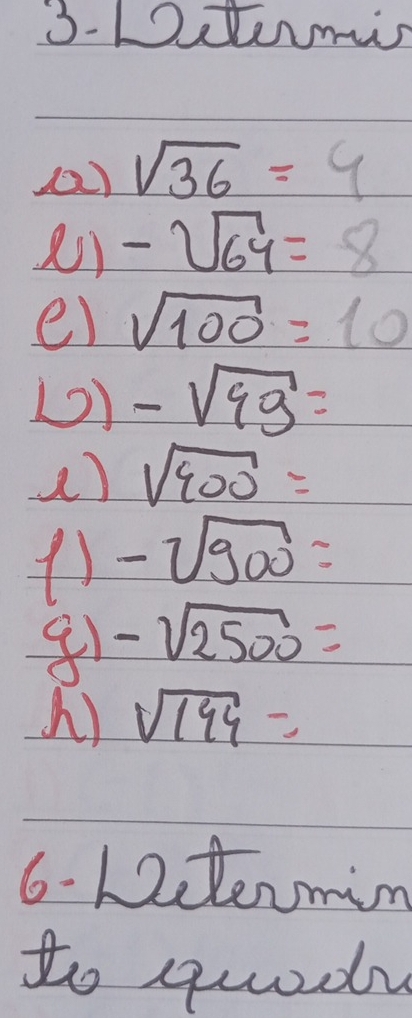 3-Determi
a) √36 = 4
b) -√64 = 8
c) √100 = 10
D) -√49 =
e) √400 =
f) -√900 =
g) -√2500 =
h) √144 =
6-Determin
to quadr